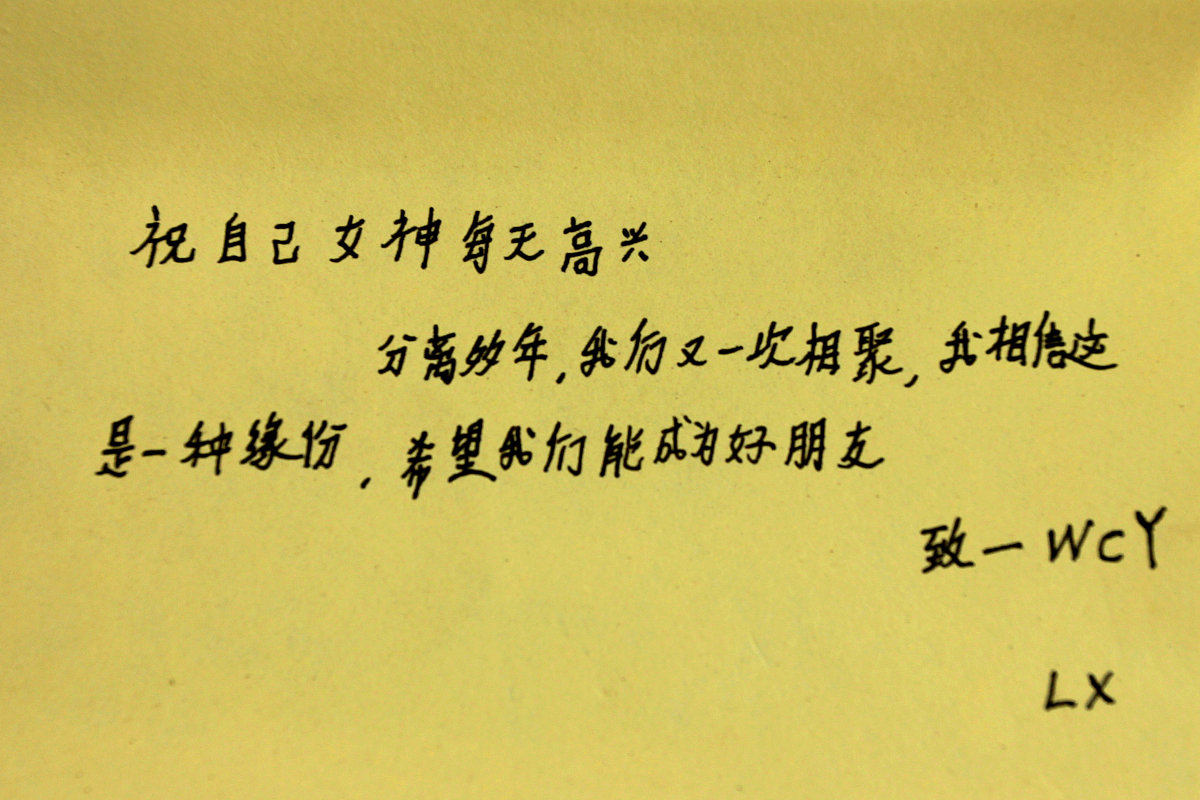 祝自己女神每天高兴
分离数年,我们又一次相聚,我相信这
是一种缘份,希望我们能成为好朋友
致一WCY
LX